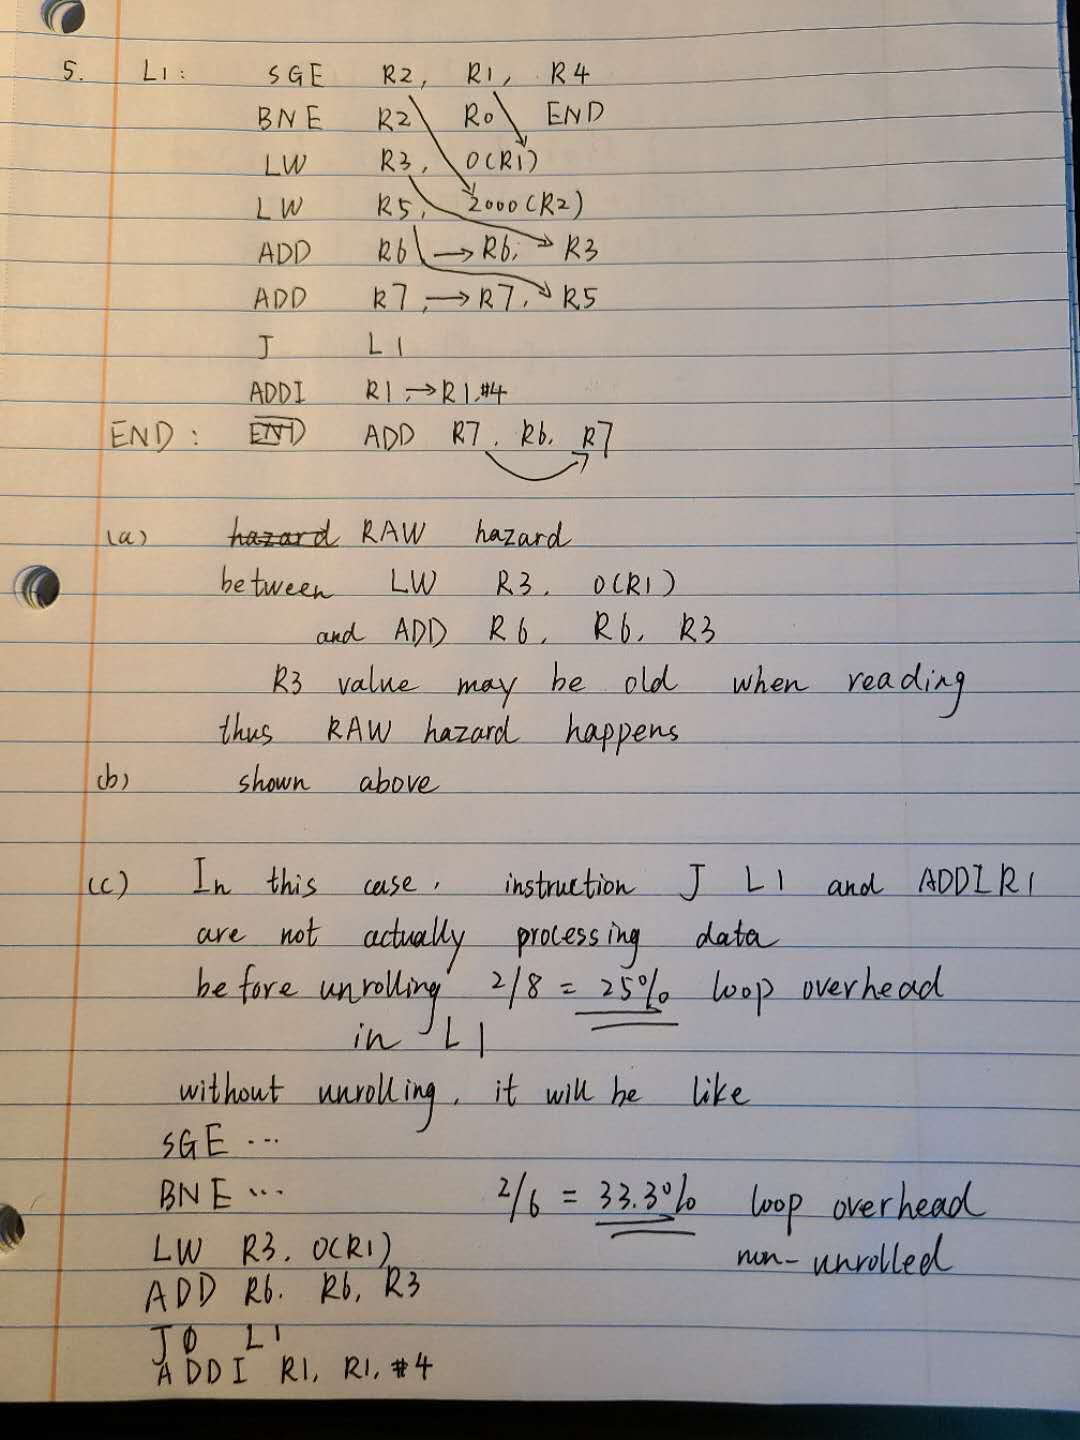 5. L1: SGE R2, R1, R4
BNE R2 R0 END
LW R3, 0(R1)
LW R5, 2000(R2)
ADD R6 → R6, R3
ADD R7, → R7, R5
J L1
ADDI R1, → R1, #4
END: END ADD R7, R6, R7
(a) hazard RAW hazard
between LW R3, 0(R1)
and ADD R6, R6, R3
R3 value may be old when reading
thus RAW hazard happens
(b) shown above
(c) In this case, instruction J L1 and ADDI R1
are not actually processing data
before unrolling 2/8 = 25% loop overhead
in L1
without unrolling, it will be like
SGE ...
BNE ... 2/6 = 33.3% loop overhead
LW R3, 0(R1) non-unrolled
ADD R6, R6, R3
J L1
ADDI R1, R1, #4